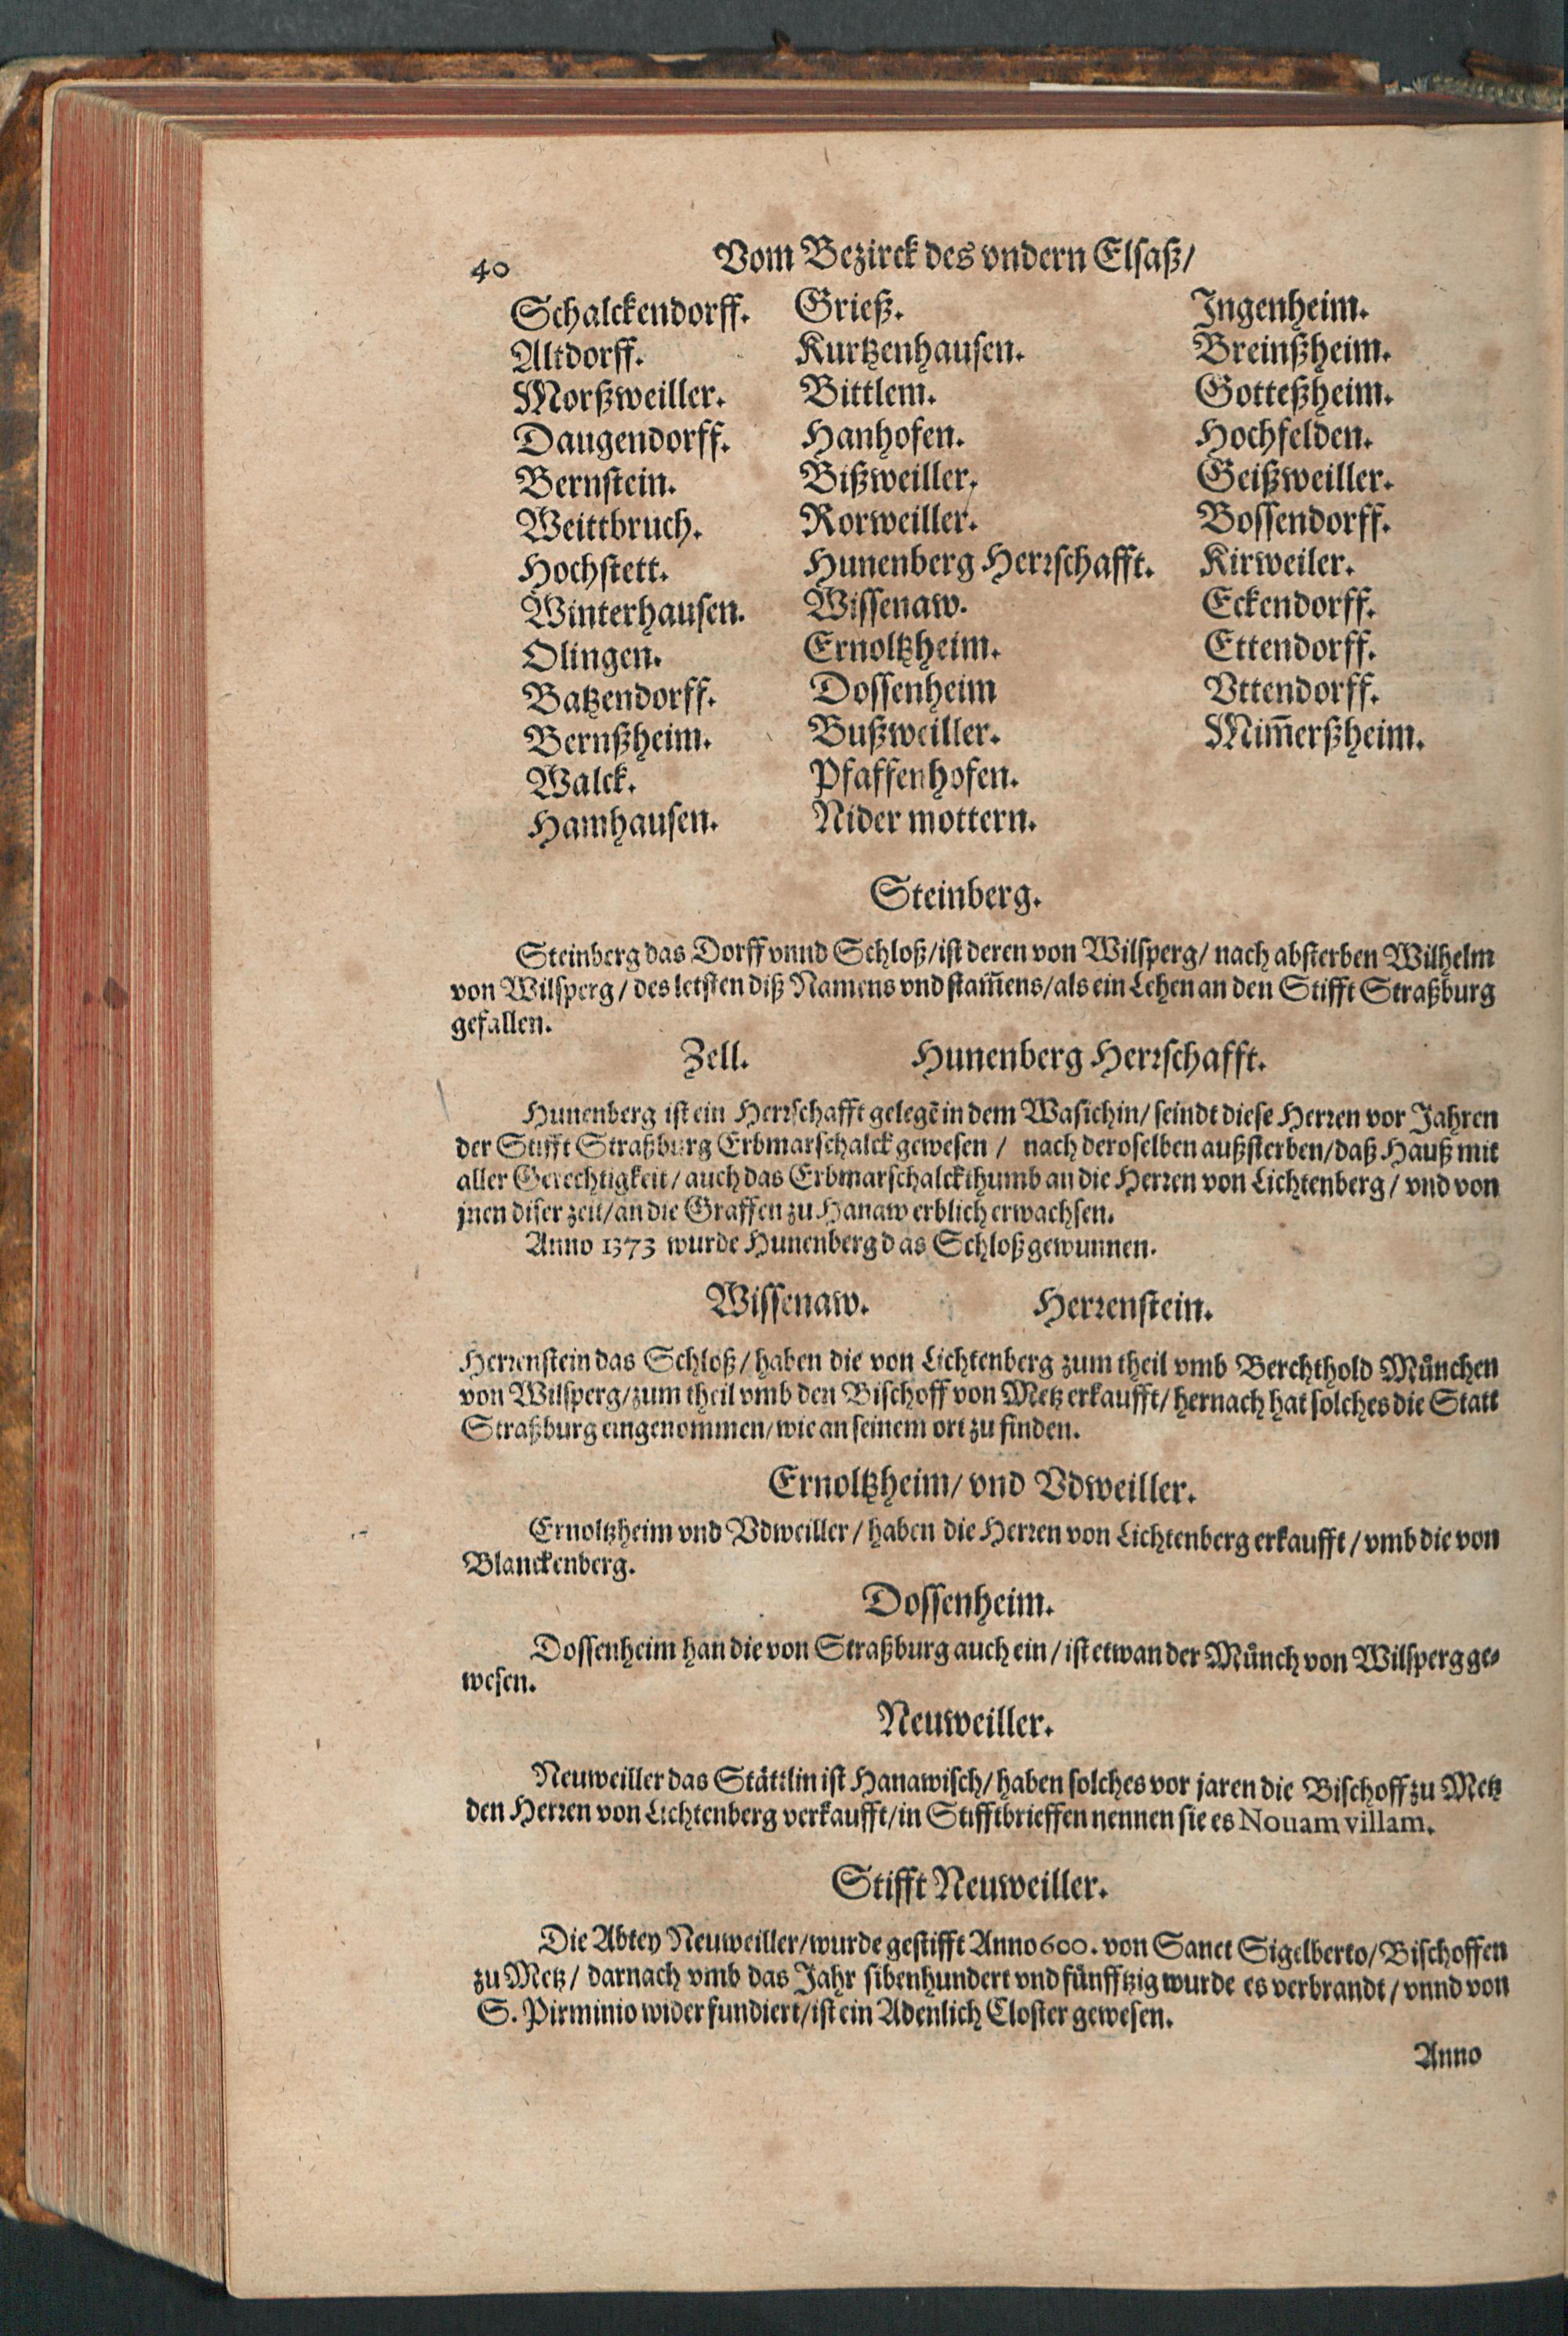 40
Vom Bezirck des vndern Elsaß/
Schalckendorff.
Altdorff.
Morßweiller.
Daugendorff.
Bernstein.
Weittbruch.
Hochstett.
Winterhausen.
Olingen.
Batzendorff.
Bernßheim.
Walck.
Hamhausen.
Grieß.
Kurtzenhausen.
Bittlem.
Hanhofen.
Bißweiller.
Rorweiller.
Hunenberg Herrschafft.
Wissenaw.
Ernoltzheim.
Dossenheim
Bußweiller.
Pfaffenhofen.
Nider mottern.
Ingenheim.
Breinßheim.
Gotteßheim.
Hochfelden.
Geißweiller.
Bossendorff.
Kirweiler.
Eckendorff.
Ettendorff.
Vttendorff.
Mim̄erßheim.
Steinberg.
Steinberg das Dorff vnnd Schloß/ist deren von Wilsperg/ nach absterben Wilhelm
von Wilsperg/ des letsten diß Namens vnd stam̄ens/als ein Lehen an den Stifft Straßburg
gefallen.
Zell. Hunenberg Herrschafft.
Hunenberg ist ein Herrschafft gelegē in dem Wasichin/ seindt diese Herren vor Jahren
der Stifft Straßburg Erbmarschalck gewesen / nach deroselben außsterben/daß Hauß mit
aller Gerechtigkeit/ auch das Erbmarschalckthumb an die Herren von Lichtenberg/ vnd von
jnen diser zeit/an die Graffen zu Hanaw erblich erwachsen.
Anno 1373 wurde Hunenberg das Schloß gewunnen.
Wissenaw. Herrenstein.
Herrenstein das Schloß/ haben die von Lichtenberg zum theil vmb Berchthold Můnchen
von Wilsperg/zum theil vmb den Bischoff von Metz erkaufft/ hernach hat solches die Statt
Straßburg eingenommen/wie an seinem ort zu finden.
Ernoltzheim/ vnd Vdweiller.
Ernoltzheim vnd Vdweiller/ haben die Herren von Lichtenberg erkaufft/ vmb die von
Blanckenberg.
Dossenheim.
Dossenheim han die von Straßburg auch ein/ ist etwan der Můnch von Wilsperg ge-
wesen.
Neuweiller.
Neuweiller das Stättlin ist Hanawisch/ haben solches vor jaren die Bischoff zu Metz
den Herren von Lichtenberg verkaufft/in Stifftbrieffen nennen sie es Nouam villam.
Stifft Neuweiller.
Die Abtey Neuweiller/wurde gestifft Anno 600. von Sanct Sigelberto/Bischoffen
zu Metz/ darnach vmb das Jahr sibenhundert vnd fünfftzig wurde es verbrandt/ vnnd von
S. Pirminio wider fundiert/ist ein Adenlich Closter gewesen.
Anno